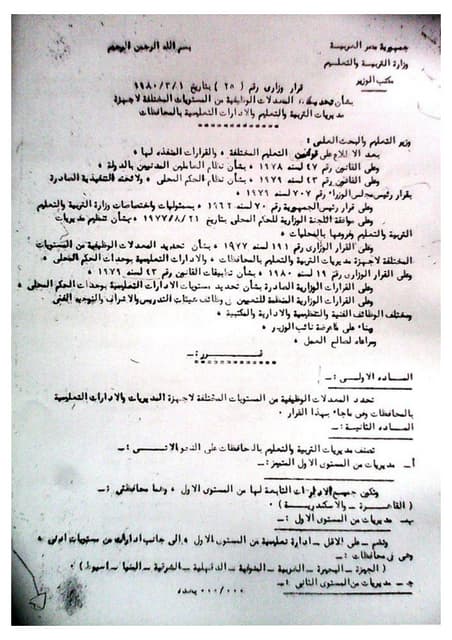 جمهورية مصر العربية
بسم الله الرحمن الرحيم
وزارة التربية والتعليم
مكتب الوزير
قرار وزارى رقم ( ٢٥ ) بتاريخ ١ / ٣ / ١٩٨٠
بشأن تحديد المعدلات الوظيفية من المستويات المختلفة لاجهزة
مديريات التربية والتعليم والادارات التعليمية بالمحافظات
وزير التعليم والبحث العلمى :
بعد الاطلاع على قوانين التعليم المختلفة والقرارات المنفذه لها
وعلى القانون رقم ٤٧ لسنه ١٩٧٨ بشأن نظام العاملين المدنيين بالدولة
وعلى القانون رقم ٤٣ لسنه ١٩٧٩ بشأن نظام الحكم المحلى ولائحته التنفيذية الصادرة
بقرار رئيس مجلس الوزراء رقم ٧٠٧ لسنه ١٩٧٩
وعلى قرار رئيس الجمهورية رقم ٧٠ لسنه بمسئوليات واختصاصات وزارة التربية والتعليم
وعلى موافقة اللجنة الوزارية للحكم المحلى بتاريخ ١٩٧٧/٨/٢١ بشأن تنظيم مديريات
التربية والتعليم وفروعها بالمحليات
وعلى القرار الوزارى رقم ١٩١ لسنه ١٩٧٧ بشأن تحديد المعدلات الوظيفية من المستويات
المختلفة لاجهزة مديريات التربية والتعليم بالمحافظات والادارات التعليمية بوحدات الحكم المحلى
وعلى القرار الوزارى رقم ١٩ لسنه ١٩٨٠ بشأن تطبيقات القانون رقم ٤٣ لسنه ١٩٧٩
وعلى القرارات الوزارية الصادرة بشأن تحديد مستويات الادارات التعليمية بوحدات الحكم المحلى
وعلى القرارات الوزارية المنظمة للتعيين فى وظائف هيئات التدريس والاشراف والتوجيه الفنى
ومختلف الوظائف الفنية والتنظيمية والادارية والمكتبية
وبناء على ماعرضه نائب الوزير
ومراعاه لصالح العمل
قــــرر :ــ
الماده الاولى :ــ
تحدد المعدلات الوظيفية من المستويات المختلفة لاجهزة المديريات والادارات التعليمية
بالمحافظات وفق ماجاء بهذا القرار
الماده الثانية :ــ
تصنف مديريات التربية والتعليم بالمحافظات على النحو الاتى :ــ
أ ــ مديريات من المستوى الاول المتميز :ــ
وتكون جميع الادارات التابعة لها من المستوى الاول وهما محافظتى :
( القاهرة ــ والاسكندرية )
ب ــ مديريات من المستوى الاول :ــ
وتضم ــ على الاقل ــ ادارة تعليمية من المستوى الاول الى جانب ادارات من مستويات ادنى
وهى فى محافظات :ــ
( الجيزة ــ البحيرة ــ الغربية ــ المنوفية ــ الدقهلية ــ الشرقية ــ المنيا ــ اسيوط )
ج ــ مديريات من المستوى الثانى :ــ